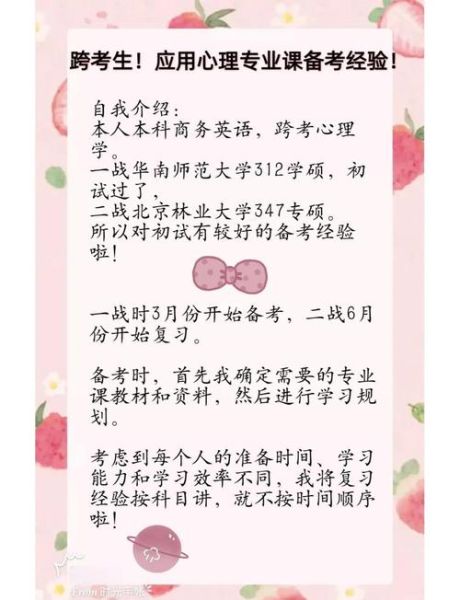 跨考生！应用心理专业课备考经验！
自我介绍：
本人本科商务英语，跨考心理
学。
一战华南师范大学312学硕，初
试过了，
二战北京林业大学347专硕。
所以对初试有较好的备考经验
啦！
一战时3月份开始备考，二战6月
份开始复习。
备考时，首先我确定需要的专业
课教材和资料，然后进行学习规
划。
考虑到每个人的准备时间、学习
能力和学习效率不同，我将复习
经验按科目讲，就不按时间顺序
啦！
From